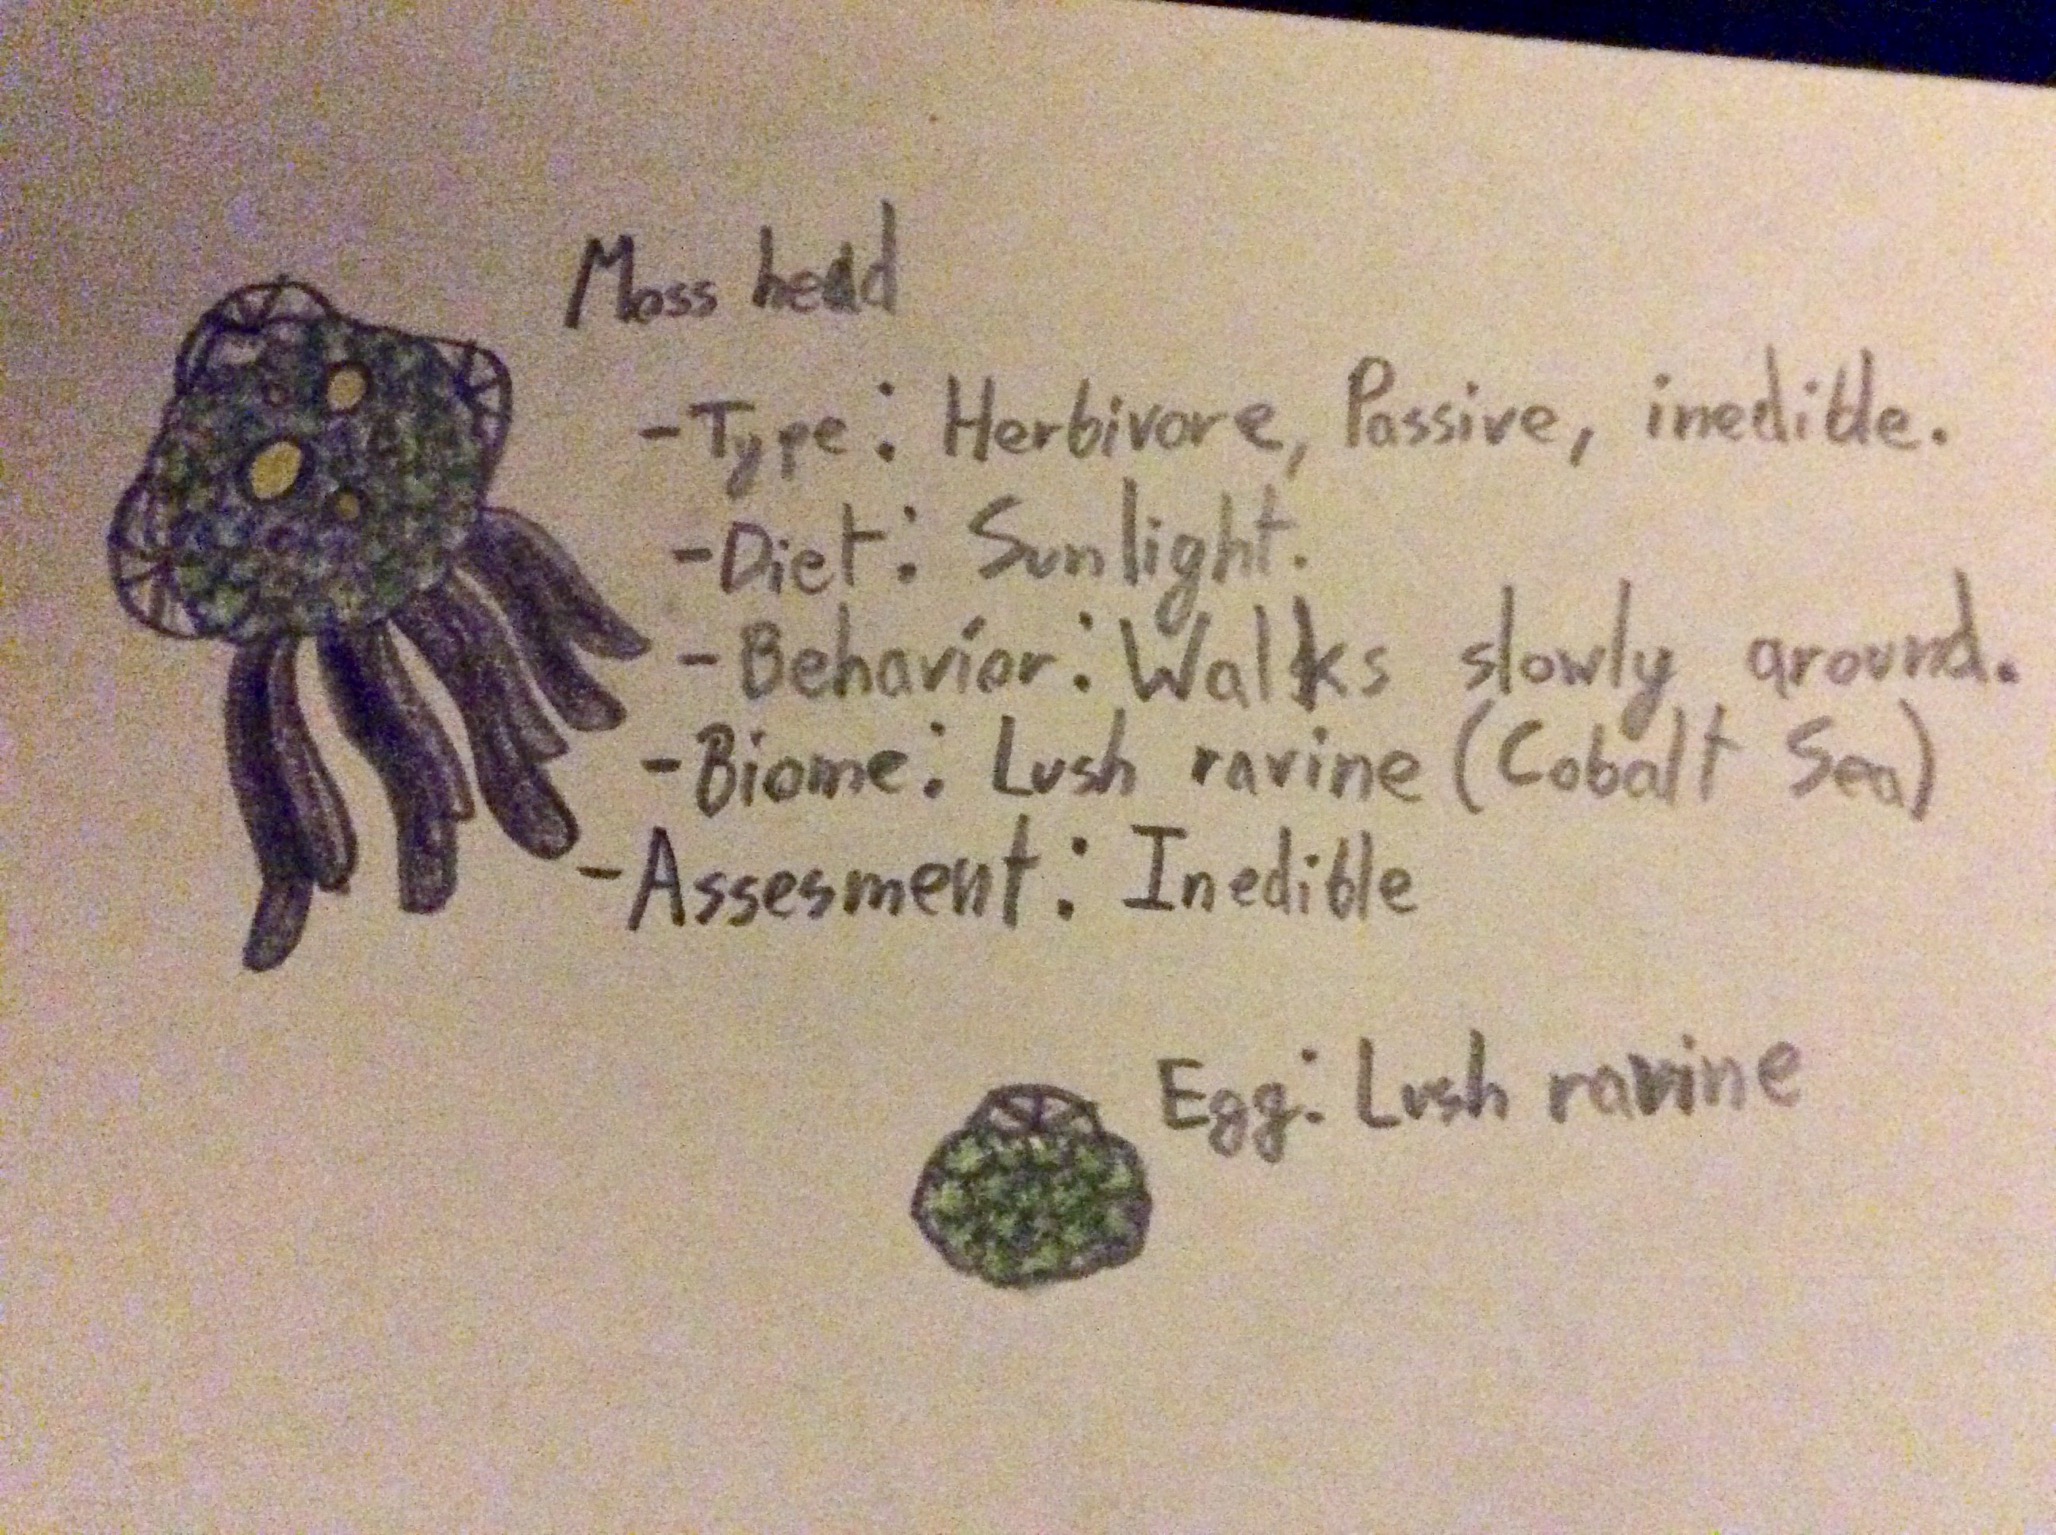 Moss head
-Type: Herbivore, Passive, inedible.
-Diet: Sunlight.
-Behavior: Walks slowly around.
-Biome: Lush ravine (Cobalt Sea)
-Assesment: Inedible
Egg: Lush ravine